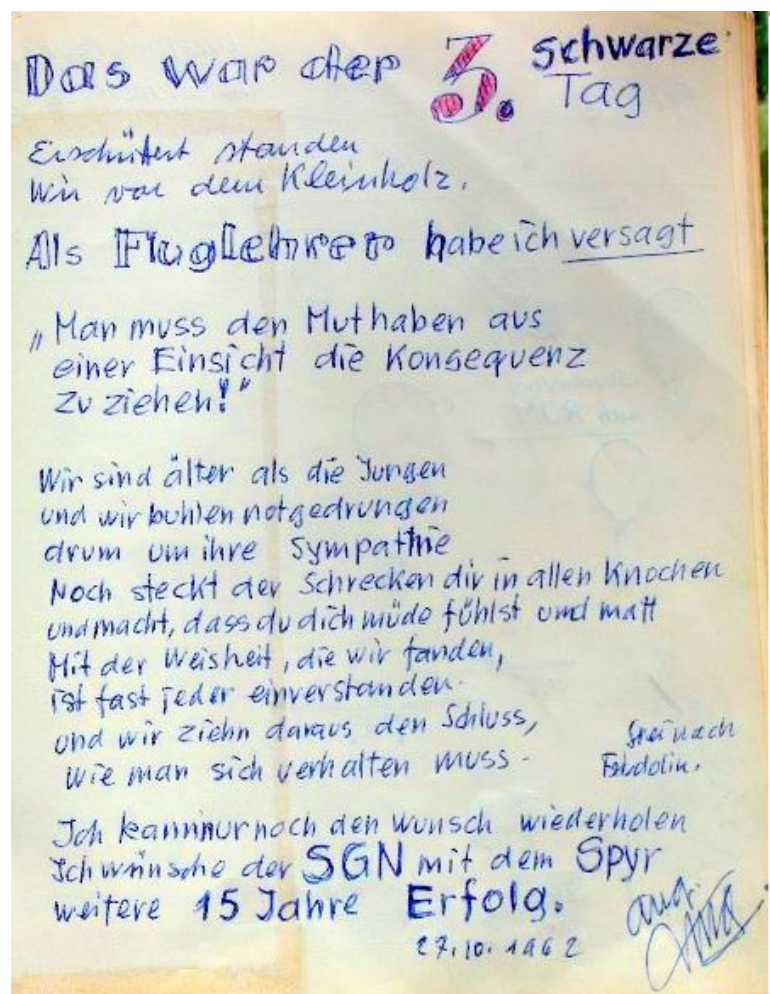 Das war der 3. schwarze Tag
Erschüttert standen
Wir vor dem Kleinholz.
Als Fluglehrer habe ich versagt
„Man muss den Mut haben aus
einer Einsicht die Konsequenz
zu ziehen!"
Wir sind älter als die Jungen
und wir buhlen notgedrungen
drum um ihre Sympathie
Noch steckt der Schrecken dir in allen Knochen
und macht, dass du dich müde fühlst und matt
Mit der Weisheit, die wir fanden,
ist fast jeder einverstanden.
und wir ziehn daraus den Schluss,
wie man sich verhalten muss.
frei nach
Fridolin.
Ich kann nur noch den Wunsch wiederholen
Ich wünsche der SGN mit dem Spyr
weitere 15 Jahre Erfolg.
27.10.1962